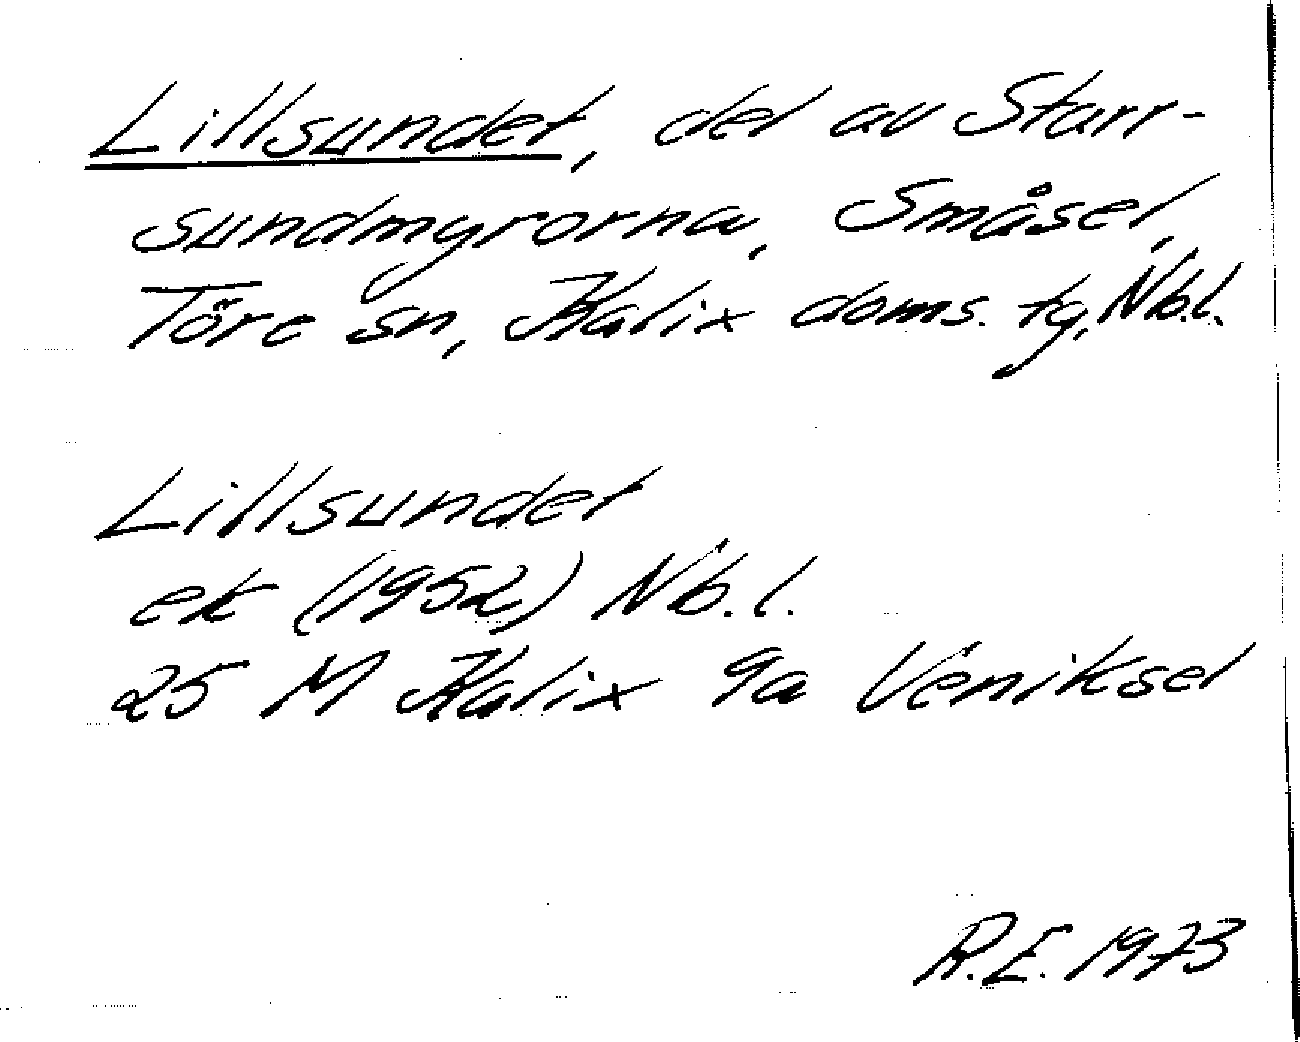 Lillsundet, del av Starr-
sundmyrorna, Småsel,
Töre sn, Kalix doms. tg, Nb.l.
Lillsundet
ek (1952) Nb.l.
25 M Kalix 9a Veniksel
R.E. 1973